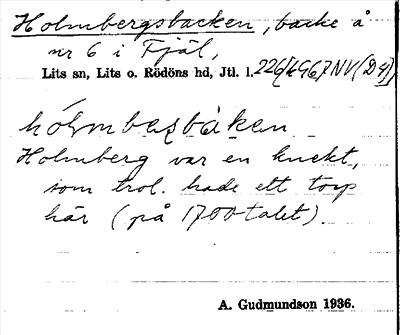 Holmbergsbacken, backe å
nr 6 i Fjäl,
Lits sn, Lits o. Rödöns hd, Jtl. l.
hólmbæṣbàkan
Holmberg var en knekt,
som trol. hade ett torp
här (på 1700-talet).
A. Gudmundson 1936.